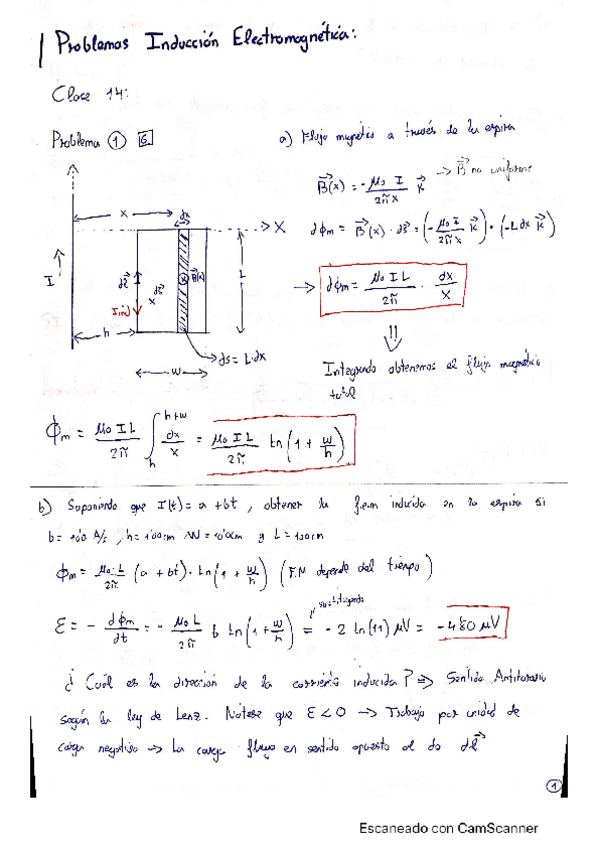 Problemas Inducción Electromagnética:
Clase 14:
Problema ① 6
a) Flujo magnético a través de la espira
B⃗(x) = - μ₀ I / 2π x k⃗ → B⃗ no uniforme
dϕm = B⃗(x) · ds⃗ = (- μ₀ I / 2π x k⃗) · (-L dx k⃗)
→ dϕm = μ₀ I L / 2π · dx / x
⇓
Integrando obtenemos el flujo magnético
total
x dx → X
I dl⃗ ds⃗ B⃗(x) L
Iind
h → ds = L·dx
w
ϕm = μ₀ I L / 2π ∫ₕʰ⁺ʷ dx / x = μ₀ I L / 2π Ln(1 + w/h)
b) Suponiendo que I(t) = a + bt, obtener la f.e.m inducida en la espira si
b = 10'0 A/s, h = 1'00 cm W = 10'0cm y L = 100cm
ϕm = μ₀·L / 2π (a + bt) · Ln(1 + w/h) (F.M depende del tiempo)
ε = - dϕm / dt = - μ₀ L / 2π b Ln(1 + w/h) = - 2 Ln(11) μV = - 4'80 μV
¿Cuál es la dirección de la corriente inducida? ⇒ Sentido Antihorario
según la ley de Lenz. Nótese que ε < 0 → Trabajo por unidad de
carga negativo → La carga fluye en sentido opuesto al de dl⃗
①
Escaneado con CamScanner